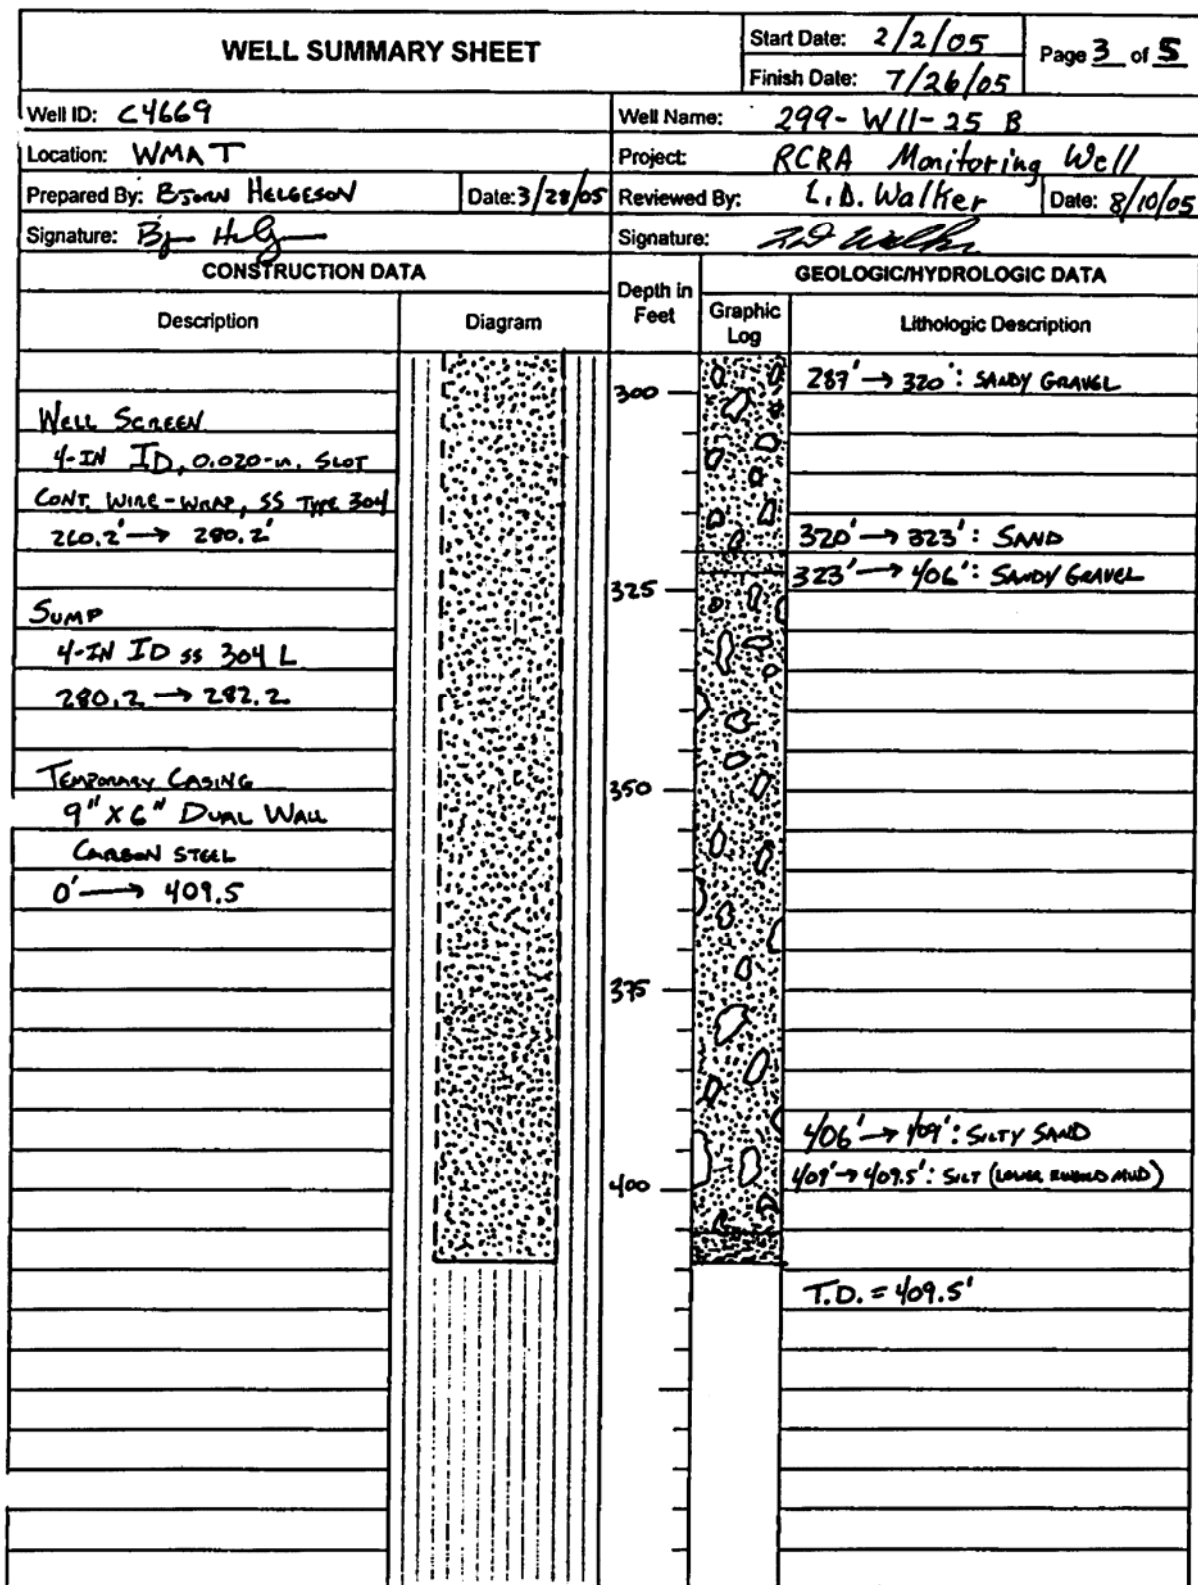 WELL SUMMARY SHEET
Start Date: 2/2/05
Finish Date: 7/26/05
Page 3 of 5
Well ID: C4669
Well Name: 299-W11-25 B
Location: WMA T
Project: RCRA Monitoring Well
Prepared By: BJORN HELGESON
Date: 3/28/05
Reviewed By: L.D. Walker
Date: 8/10/05
Signature:
Signature:
CONSTRUCTION DATA
Depth in
Feet
GEOLOGIC/HYDROLOGIC DATA
Description
Diagram
Graphic
Log
Lithologic Description
WELL SCREEN
4-IN ID, 0.020-in. SLOT
CONT. WIRE-WRAP, SS TYPE 304
260.2' → 280.2'
SUMP
4-IN ID SS 304 L
280.2 → 282.2
TEMPORARY CASING
9" X 6" DUAL WALL
CARBON STEEL
0' → 409.5
300
325
350
375
400
287' → 320': SANDY GRAVEL
320' → 323': SAND
323' → 406': SANDY GRAVEL
406' → 409': SILTY SAND
409' → 409.5': SILT (LOWER RINGOLD MUD)
T.D. = 409.5'